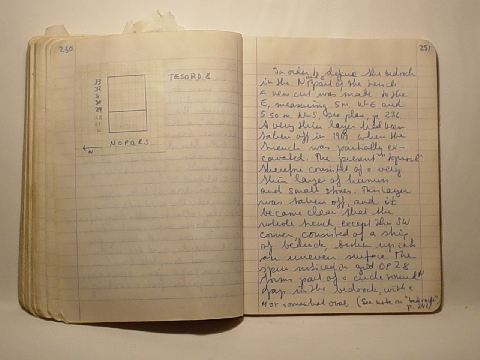 280
TESORO 8
33
32
31
30
29
N O P Q R S
N
281
In order to define the bedrock
in the N part of the trench
a new cut was made to the
E, measuring 5 m. W-E and
5.50 m. N-S, see plan p. 276.
A very thin layer had been
taken off in 19 when the
trench was partially ex-
cavated. The present
therefore consisted of a very
thin layer of humus
and small stones. This layer
was taken off, and it
became clear that the
whole trench, except the SW
corner, consisted of a strip
of bedrock, broken up with
an uneven surface. The
noticed in grid OP 28
forms part of a circle round
gap in the bedrock, with a
or somewhat oval. (See note on
p. 282)